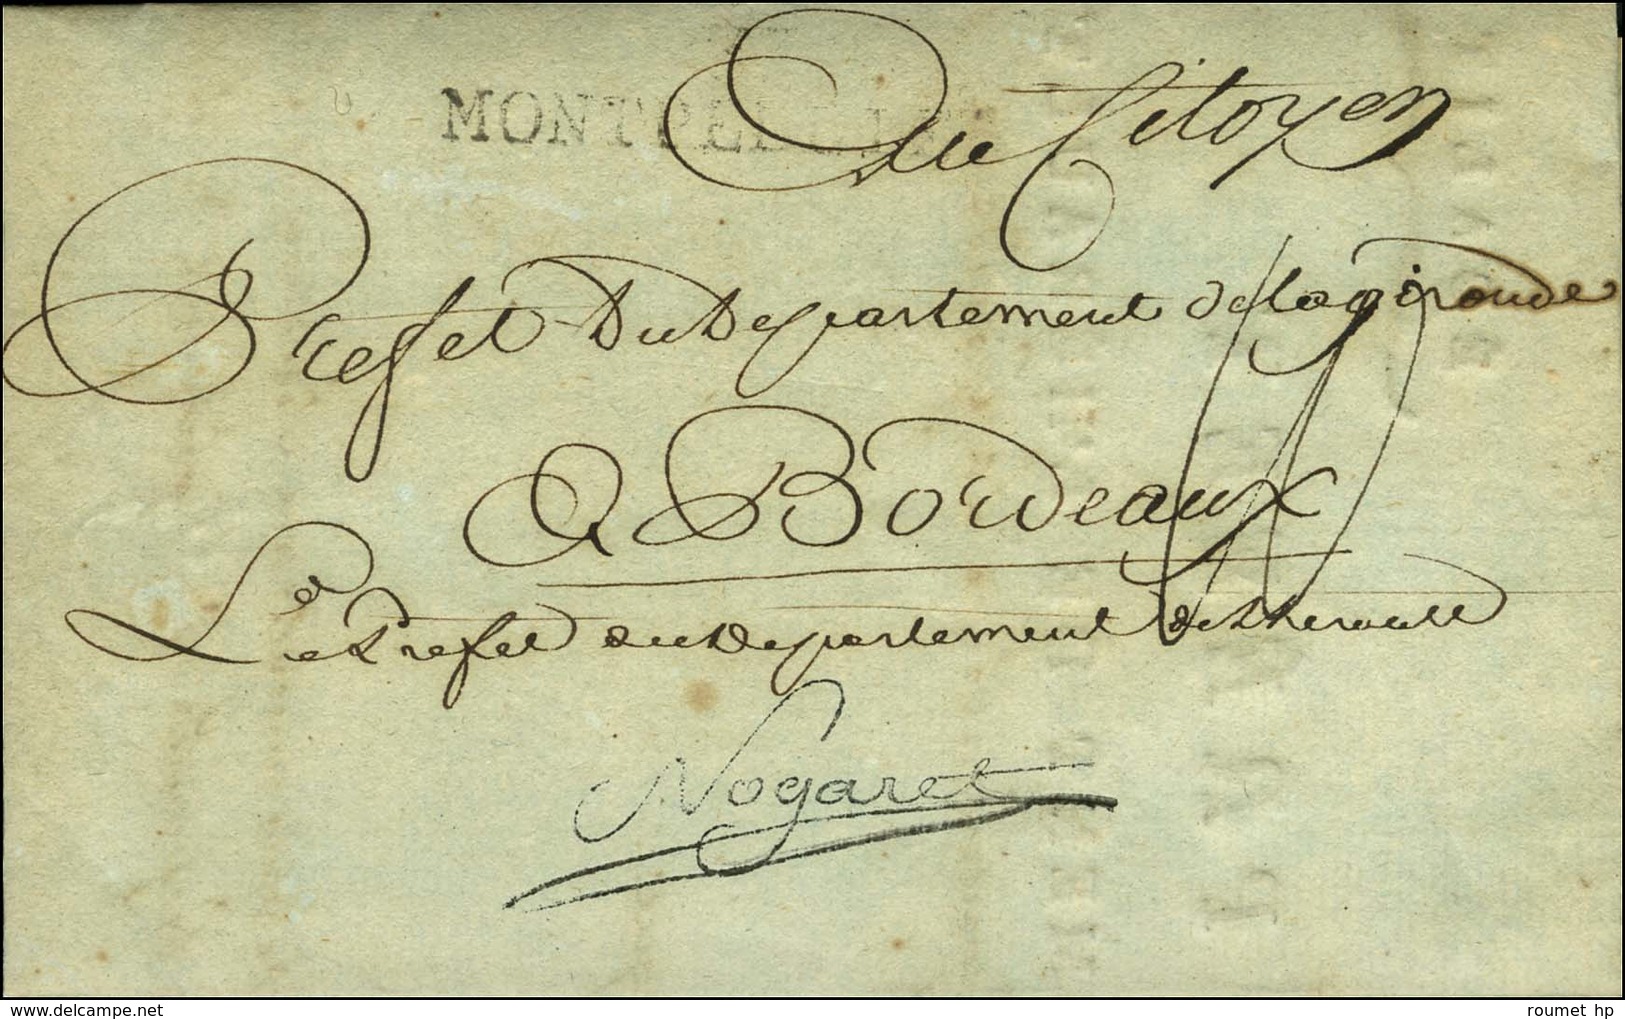 MONTPELLIER
Au Citoyen
Prefet Du Departement de la gironde
A Bordeaux
Le Prefet du Departement de L'herault
Nogaret
www.delcampe.net
roumet hp